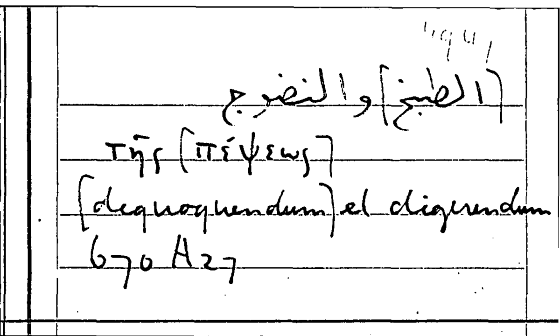 [الطبخ] والنضوج
τῆς [πέψεως]
[dequoquendum] et digerendum
670 A27